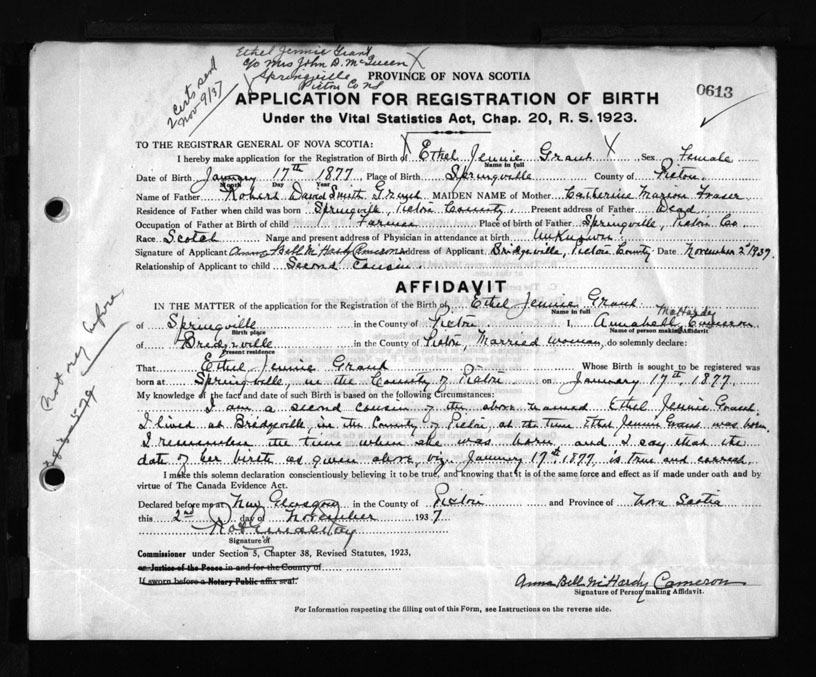 Ethel Jennie Grant
c/o Mrs John D. McQueen
Springville
Pictou Co NS
2 certs send
Nov 9/37
PROVINCE OF NOVA SCOTIA
0613
APPLICATION FOR REGISTRATION OF BIRTH
Under the Vital Statistics Act, Chap. 20, R. S. 1923.
TO THE REGISTRAR GENERAL OF NOVA SCOTIA:
I hereby make application for the Registration of Birth of Ethel Jennie Grant Sex Female
Name in full
Date of Birth January 17th 1877 Place of Birth Springville County of Pictou
Month Day Year
Name of Father Robert David Smith Grant MAIDEN NAME of Mother Catherine Marion Fraser
Residence of Father when child was born Springville, Pictou County. Present address of Father Dead
Occupation of Father at Birth of child Farmer Place of birth of Father Springville, Pictou Co.
Race Scotch Name and present address of Physician in attendance at birth Unknown
Signature of Applicant Anna Bell McHardy Cameron Address of Applicant Bridgeville, Pictou County Date November 2nd 1937.
Relationship of Applicant to child Second Cousin
AFFIDAVIT
IN THE MATTER of the application for the Registration of the Birth of Ethel Jennie Grant
Name in full
McHardy
of Springville in the County of Pictou I, Annabell Cameron
Birth place Name of person making Affidavit
of Bridgeville in the County of Pictou, Married woman, do solemnly declare:
Present residence
That Ethel Jennie Grant Whose Birth is sought to be registered was
born at Springville, in the County of Pictou on January 17th, 1877.
My knowledge of the fact and date of such Birth is based on the following Circumstances:
I am a second cousin of the above named Ethel Jennie Grant.
I lived at Bridgeville, in the County of Pictou, at the time Ethel Jennie Grant was born.
I remember the time when she was born, and I say that the
date of her birth as given above, viz. January 17th, 1877 is true and correct.
I make this solemn declaration conscientiously believing it to be true, and knowing that it is of the same force and effect as if made under oath and by
virtue of The Canada Evidence Act.
Declared before me at New Glasgow in the County of Pictou and Province of Nova Scotia
this 2nd day of November 1937
Signature of
Commissioner under Section 5, Chapter 38, Revised Statutes, 1923,
or Justice of the Peace in and for the County of
If sworn before a Notary Public affix seal.
Anna Bell McHardy Cameron
Signature of Person making Affidavit.
For Information respecting the filling out of this Form, see Instructions on the reverse side.
Not reg before,